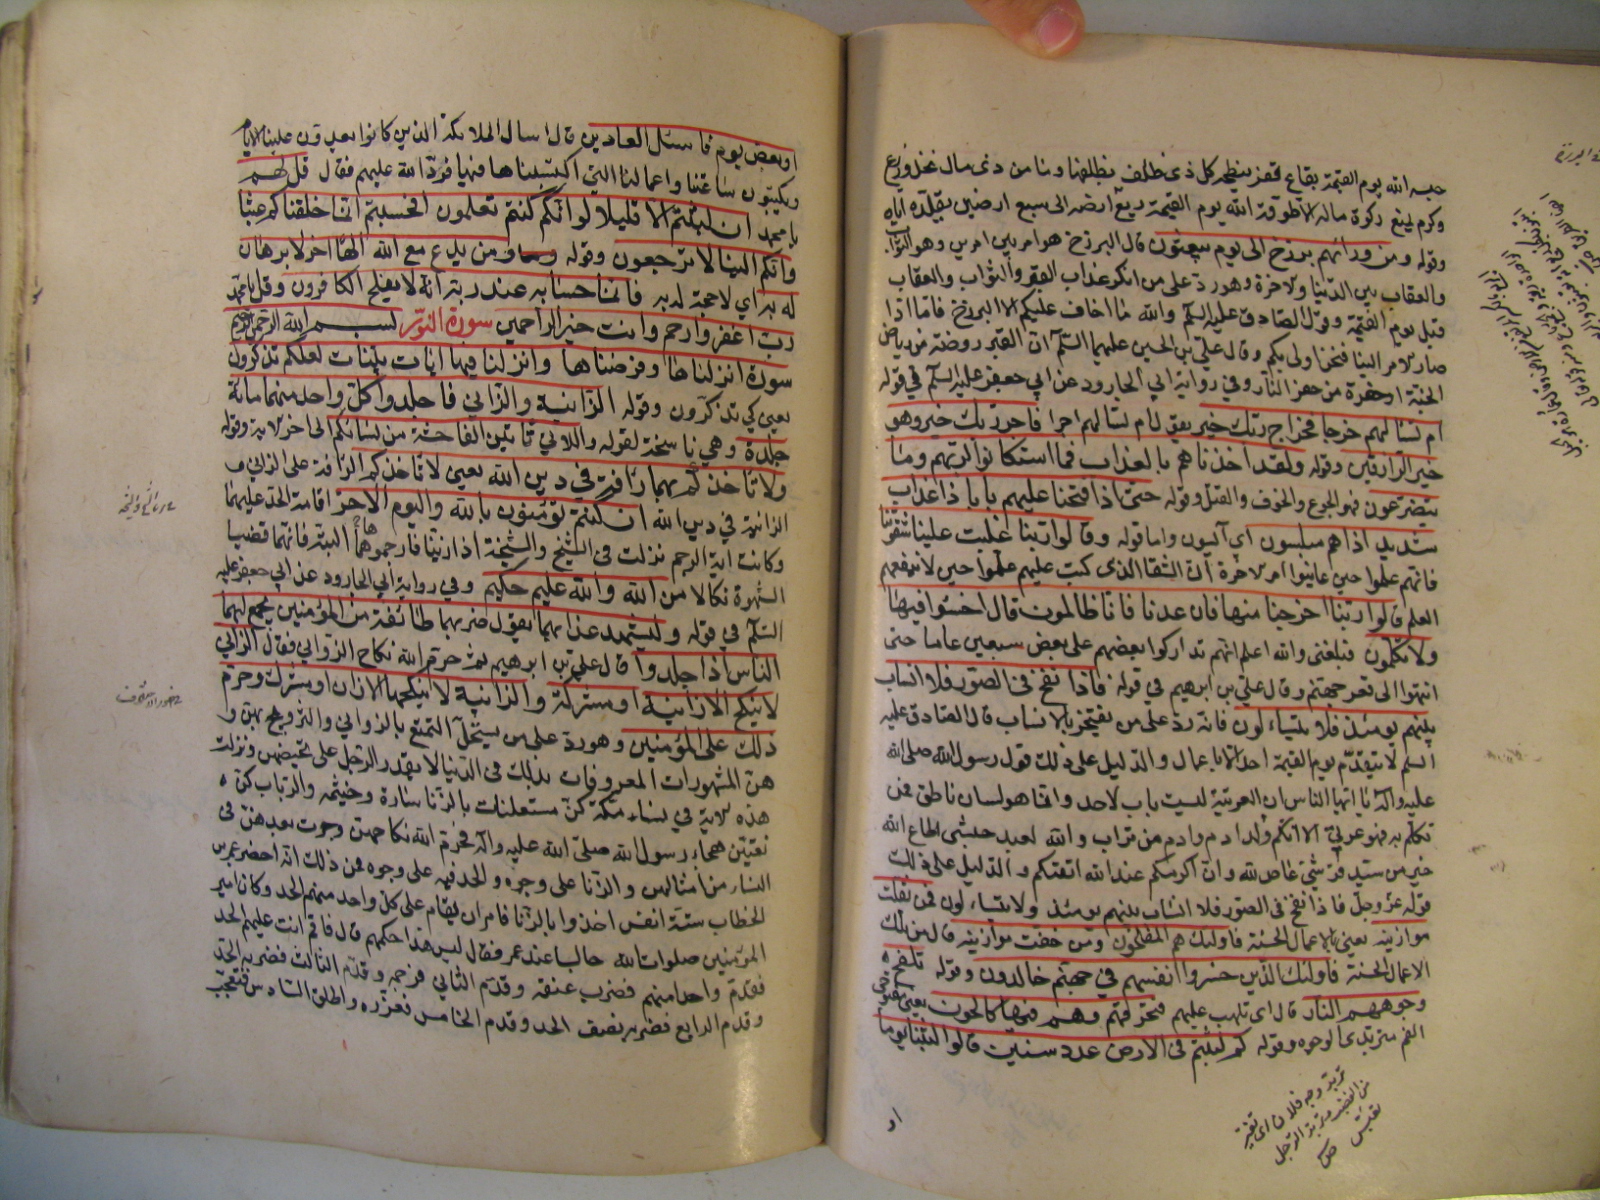 حبسه الله يوم القيمة بقاع قفر ينطحه كل ذى ظلف بظلفها وما من ذى مال نخل وزرع
وكرم يمنع زكوة ماله الا طوقه الله يوم القيمة ريع ارضه الى سبع ارضين يقلده اياه
وقوله ومن ورائهم برزخ الى يوم يبعثون قال البرزخ هو امر بين امرين وهو الثواب
والعقاب بين الدنيا والاخرة وهو رد على من انكر عذاب القبر والثواب والعقاب
قبل يوم القيمة وقول الصادق عليه السلم والله ما اخاف عليكم الا البرزخ فاما اذا
صار الامر الينا فنحن اولى بكم وقال على بن الحسين عليهما السلم ان القبر روضة من رياض
الجنة او حفرة من حفر النار وفي رواية ابي الجارود عن ابي جعفر عليه السلم في قوله
ام تسالهم خرجا فخراج ربك خير يقول ام تسالهم اجرا فاجر ربك خير وهو
خير الرازقين وقوله ولقد اخذناهم بالعذاب فما استكانوا لربهم وما
يتضرعون فهو الجوع والخوف والقتل وقوله حتى اذا فتحنا عليهم بابا ذا عذاب
شديد اذا هم مبلسون اى آيسون واما قوله وقالوا ربنا غلبت علينا شقوتنا
فانهم علموا حين عاينوا امر الاخرة ان الشقا الذى كتب عليهم علموا حين لا ينفعهم
العلم قالوا ربنا اخرجنا منها فان عدنا فانا ظالمون قال اخسئوا فيها
ولا تكلمون فبلغنى والله اعلم انهم تداركوا بعضهم على بعض سبعين عاما حتى
انتهوا الى قعر جهنم وقال علي بن ابرهيم في قوله فاذا نفخ فى الصور فلا انساب
بينهم يومئذ ولا يتساءلون فانه رد على من يفتخر بالانساب قال الصادق عليه
السلم لا يتقدم يوم القيمة احد الا بالاعمال والدليل على ذلك قول رسول الله صلى الله
عليه وآله يا ايها الناس ان العربية ليست باب لاحد وانما هو لسان ناطق فمن
تكلم به فهو عربي الا انكم ولد ادم وادم من تراب والله لعبد حبشى اطاع الله
خير من سيد قرشي عاص لله وان اكرمكم عند الله اتقيكم والدليل على ذلك
قوله عز وجل فاذا نفخ فى الصور فلا انساب بينهم يومئذ ولا يتساءلون فمن ثقلت
موازينه يعني بالاعمال الحسنة فاولئك هم المفلحون ومن خفت موازينه قال من تلك
الاعمال الحسنة فاولئك الذين خسروا انفسهم في جهنم خالدون وقوله تلفح
وجوههم النار قال اى تلهب عليهم فتحرقهم وهم فيها كالحون يعنى مفتوحى
الفم متربدى الوجوه وقوله كم لبثتم فى الارض عدد سنين قالوا لبثنا يوما
تربد وجه فلان اى تغير
من الغضب وتربد الرجل
تعبس ص
او
او بعض يوم فاسئل العادين قال اسال الملائكة الذين كانوا يعدون علينا الايام
ويكتبون ساعاتنا واعمالنا التى اكتسبناها فيها فرد الله عليهم فقال قل لهم
يا محمد ان لبثتم الا قليلا لو انكم كنتم تعلمون افحسبتم انما خلقناكم عبثا
وانكم الينا لا ترجعون وقوله ومن يدع مع الله الها اخر لا برهان
له به اي لا حجة له به فانما حسابه عند ربه انه لا يفلح الكافرون وقل يا محمد
رب اغفر وارحم وانت خير الراحمين سورة النور بسم الله الرحمن الرحيم
سورة انزلناها وفرضناها وانزلنا فيها ايات بينات لعلكم تذكرون
يعنى كي تذكرون وقوله الزانية والزاني فاجلدوا كل واحد منهما مائة
جلدة وهي ناسخة لقوله واللاتي ياتين الفاحشة من نسائكم الى اخر الاية وقوله
ولا تاخذكم بهما رافة في دين الله يعنى لا تاخذكم الرافة على الزاني و
الزانية في دين الله ان كنتم تؤمنون بالله واليوم الاخر اقامة الحد عليهما
وكانت اية الرجم نزلت فى الشيخ والشيخة اذا زنيا فارجموهما البتة فانهما قضيا
الشهوة نكالا من الله والله عليم حكيم وفي رواية ابي الجارود عن ابي جعفر عليه
السلم في قوله وليشهد عذابهما يقول ضربهما طائفة من المؤمنين يجمع لهما
الناس اذا جلدوا قال علي بن ابرهيم ثم حرم الله نكاح الزواني فقال الزانى
لا ينكح الا زانية او مشركة والزانية لا ينكحها الا زان او مشرك وحرم
ذلك على المؤمنين وهو رد على من يستحل التمتع بالزواني والتزويج بهن و
هن المشهورات المعروفات بذلك فى الدنيا لا يقدر الرجل على تحصينهن ونزلت
هذه الاية في نساء مكة كن مستعلنات بالزنا سارة وخيثمه والرباب كن
يغنين هجاء رسول الله صلى الله عليه وآله فحرم الله نكاحهن وجرت بعدهن فى
النساء من امثالهن والزنا على وجوه والحد فيه على وجوه فمن ذلك انه احضر عمر بن
الخطاب ستة انفس اخذوا بالزنا فامر ان يقام على كل واحد منهم الحد وكان امير
المؤمنين صلوات الله جالسا عند عمر فقال ليس هذا حكمهم قال فاقم انت عليهم الحد
فقدم واحدا منهم فضرب عنقه وقدم الثاني فرجمه وقدم الثالث فضربه الحد
وقدم الرابع فضربه نصف الحد وقدم الخامس فعزره واطلق السادس فتعجب